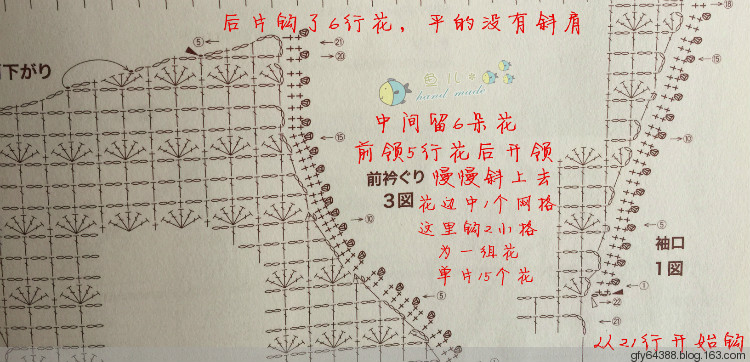 后片钩了6行花，平的没有斜肩
⑤
㉑
⑳
⑱
下がり
鱼儿
hand made
⑮
⑮
中间留6朵花
⑩
前领5行花后开领
前衿ぐり 慢慢斜上去
3図 花边中1个网格
⑩
这里钩2小格
⑤
袖口
为一组花
1図
单片15个花
⑤
①
22
㉑
从21行开始钩
gfy64388.blog.163.com